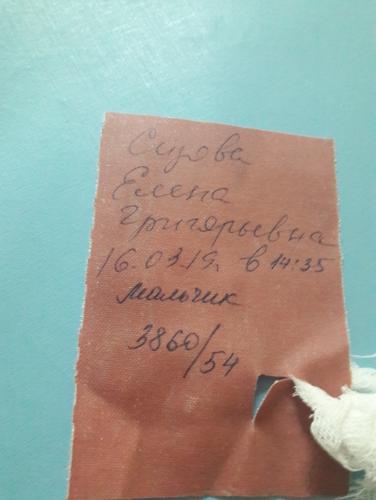 Сизова
Елена
Григорьевна
16.03.19г. в 14:35
мальчик
3860/54